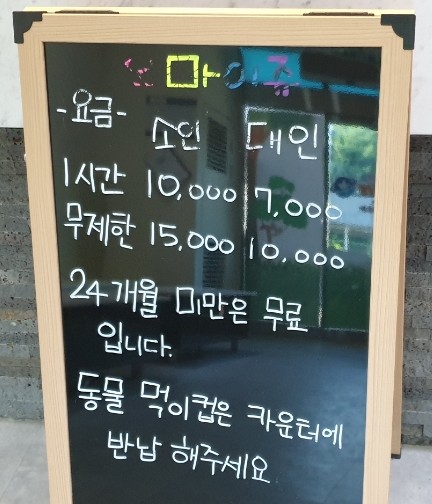 오 마이쥬
-요금-
소인 대인
1시간 10,000 7,000
무제한 15,000 10,000
24개월 미만은 무료
입니다.
동물 먹이컵은 카운터에
반납 해주세요